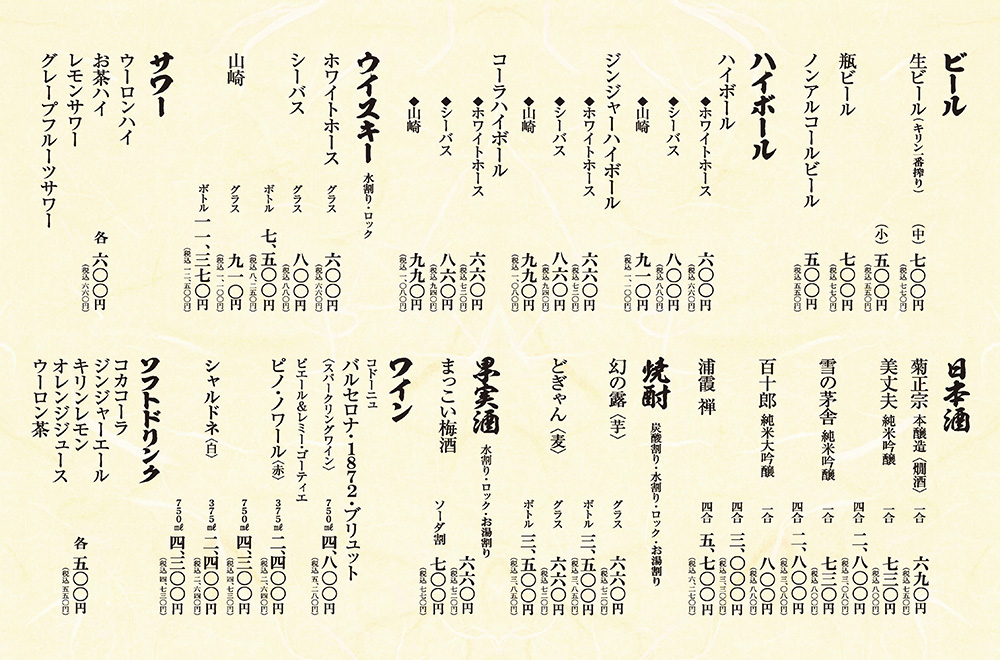 ビール
生ビール(キリン一番搾り)
(中) 七〇〇円
(税込 七七〇円)
(小) 五〇〇円
(税込 五五〇円)
瓶ビール 七〇〇円
(税込 七七〇円)
ノンアルコールビール 五〇〇円
(税込 五五〇円)
ハイボール
ハイボール
◆ホワイトホース 六〇〇円
(税込 六六〇円)
◆シーバス 八〇〇円
(税込 八八〇円)
◆山崎 九一〇円
(税込 一、一〇〇円)
ジンジャーハイボール
◆ホワイトホース 六六〇円
(税込 七二〇円)
◆シーバス 八六〇円
(税込 九四〇円)
◆山崎 九九〇円
(税込 一、〇八〇円)
コーラハイボール
◆ホワイトホース 六六〇円
(税込 七二〇円)
◆シーバス 八六〇円
(税込 九四〇円)
◆山崎 九九〇円
(税込 一、〇八〇円)
ウイスキー 水割り・ロック
ホワイトホース グラス 六〇〇円
(税込 六六〇円)
シーバス グラス 八〇〇円
(税込 八八〇円)
ボトル 七、五〇〇円
(税込 八、二五〇円)
山崎 グラス 九一〇円
(税込 一、一〇〇円)
ボトル 一一、三七〇円
(税込 一二、五〇〇円)
サワー
ウーロンハイ
お茶ハイ
レモンサワー
グレープフルーツサワー
各 六〇〇円
(税込 六六〇円)
日本酒
菊正宗 本醸造〈燗酒〉 一合 六九〇円
(税込 七五〇円)
美丈夫 純米吟醸 一合 七三〇円
(税込 八〇〇円)
四合 二、八〇〇円
(税込 三、〇八〇円)
雪の茅舎 純米吟醸 一合 七三〇円
(税込 八〇〇円)
四合 二、八〇〇円
(税込 三、〇八〇円)
百十郎 純米大吟醸 一合 八〇〇円
(税込 八八〇円)
四合 三、〇〇〇円
(税込 三、三〇〇円)
浦霞 禅 四合 五、七〇〇円
(税込 六、二七〇円)
焼酎 炭酸割り・水割り・ロック・お湯割り
幻の露〈芋〉 グラス 六六〇円
(税込 七二〇円)
ボトル 三、五〇〇円
(税込 三、八五〇円)
どぎゃん〈麦〉 グラス 六六〇円
(税込 七二〇円)
ボトル 三、五〇〇円
(税込 三、八五〇円)
果実酒 水割り・ロック・お湯割り
まっこい梅酒 六六〇円
(税込 七二〇円)
ソーダ割 七〇〇円
(税込 七七〇円)
ワイン
コドーニュ
バルセロナ・1872・ブリュット
〈スパークリングワイン〉 750㎖ 四、八〇〇円
(税込 五、二八〇円)
ピエール&レミー・ゴーティエ
ピノ・ノワール〈赤〉 375㎖ 二、四〇〇円
(税込 二、六四〇円)
750㎖ 四、三〇〇円
(税込 四、七三〇円)
シャルドネ〈白〉 375㎖ 二、四〇〇円
(税込 二、六四〇円)
750㎖ 四、三〇〇円
(税込 四、七三〇円)
ソフトドリンク
コカコーラ
ジンジャーエール
キリンレモン
オレンジジュース
ウーロン茶
各 五〇〇円
(税込 五五〇円)